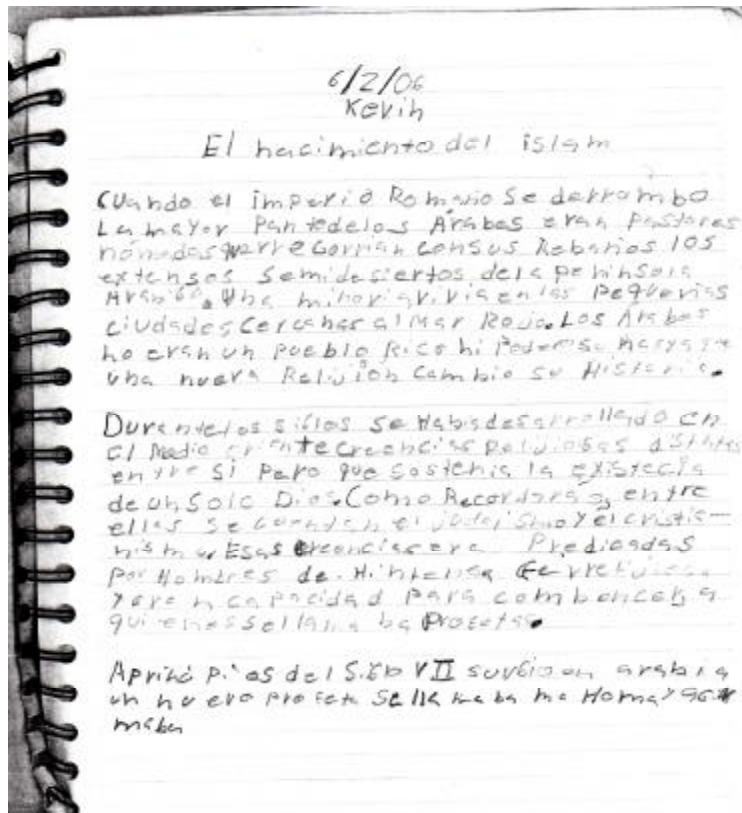 6/2/06
Kevin
El nacimiento del islam
Cuando el imperio Romano se derrambo
La mayor Pantedelos Árabes eran Pastores
nómadas que recorrian consus Rebaños los
extensos semidesiertos dela peninsola
Una minoriavivia en las Pequeñas
ciudades Cercanas al Mar Rojo. Los Árabes
no eran un Pueblo Rico ni
una nueva Relijion Cambio su Historia.
Durantelos siflos se Habiadesarrollado en
El Medio oriente creencias Relijiosas
entre si Pero que sostenia la existecia
de un Solo Dios. Como Recordaras, entre
ellas se cuentan el y el cristia-
nismo. Esas creencias era Predicadas
Por Hombres de
capacidad Para combencer a
sellama ba Profetas.
del VII en arabia
un nuevo Profeta Sellamaba